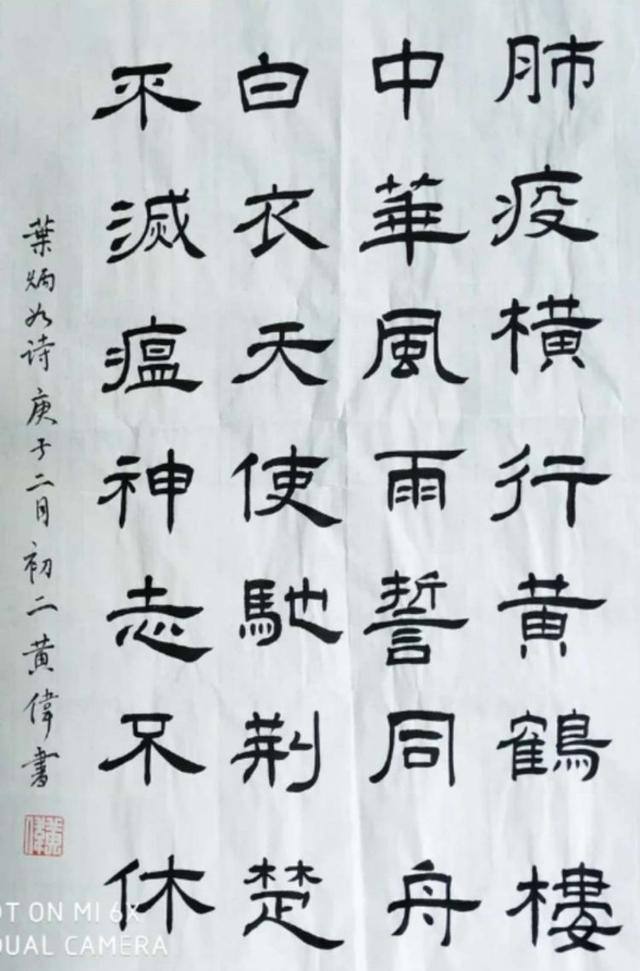 肺疫橫行黄鶴樓
中華風雨誓同舟
白衣天使馳荆楚
不滅瘟神志不休
葉炳如诗庚子二月初二黄偉書
OT ON MI 6X
DUAL CAMERA